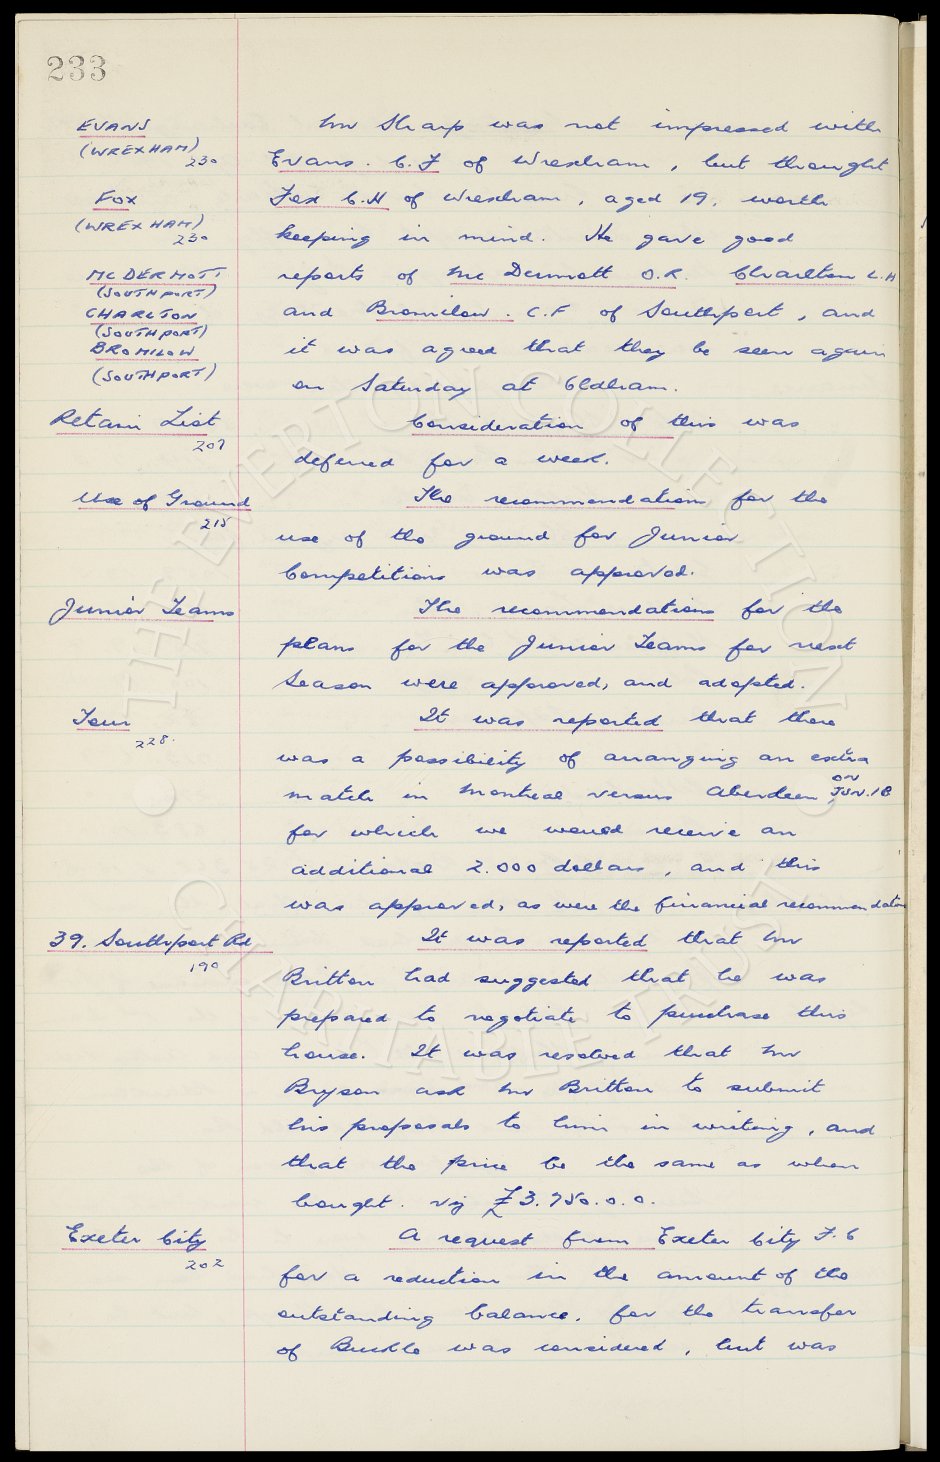 233
EVANS
(WREXHAM)
230
Mr Sharp was not impressed with
Evans. C.F of Wrexham, but thought
FOX
(WREXHAM)
230
Fox C.H of Wrexham, aged 19, worth
keeping in mind. He gave good
MCDERMOTT
(SOUTHPORT)
reports of Mc Dermott O.R. Charlton L.H
CHARLTON
(SOUTHPORT)
and Bromilow. C.F of Southport, and
BROMILOW
(SOUTHPORT)
it was agreed that they be seen again
on Saturday at Oldham.
Retain List
207
Consideration of this was
deferred for a week.
Use of Ground
215
The recommendation for the
use of the ground for Junior
Competitions was approved.
Junior Teams
The recommendations for the
plans for the Junior Teams for next
Season were approved, and adopted.
Tour
228.
It was reported that there
was a possibility of arranging an extra
match in Montreal versus Aberdeen on JUN. 18
for which we would receive an
additional 2.000 dollars, and this
was approved, as were the financial recommendations
39. Southport Rd
190
It was reported that Mr
Britton had suggested that he was
prepared to negotiate to purchase this
house. It was resolved that Mr
Bryson ask Mr Britton to submit
his proposals to him in writing, and
that the price be the same as when
bought. viz £3.750.0.0.
Exeter City
202
A request from Exeter City F.C
for a reduction in the amount of the
outstanding balance, for the transfer
of Buckle was considered, but was
© THE EVERTON COLLECTION
CHARITABLE TRUST